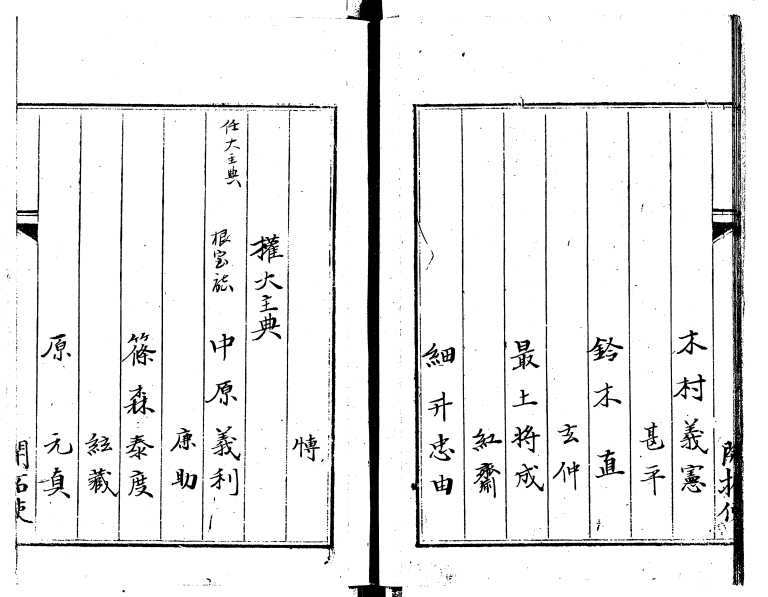 木村義憲
甚平
鈴木 直
玄仲
最上将成
紅齋
細井忠由
愽
權大主典
任大主典
根室詰 中原義利
康助
篠森泰度
紋藏
原 元眞
開拓使